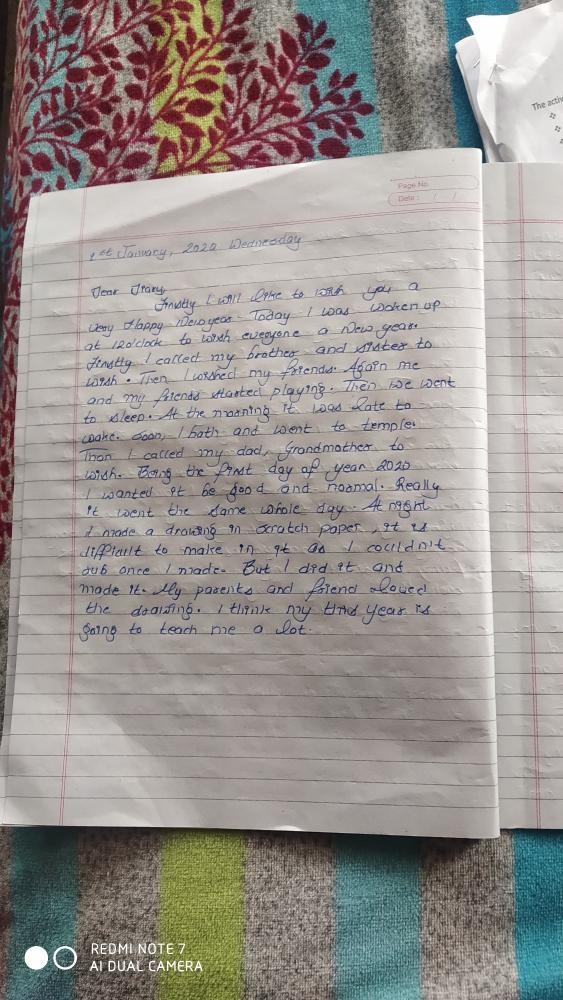 Page No.
Date : / /
The activ
1st January, 2020 Wednesday
Dear Diary,
Firstly I will like to wish you a
very Happy New year. Today I was woken up
at 12 o'clock to wish everyone a New year.
Firstly I called my brother and sister to
wish. Then I wished my friends. Again me
and my friends started playing. Then we went
to sleep. At the morning it was late to
wake. Soon, I bath and went to temple.
Than I called my dad, Grandmother to
wish. Being the first day of year 2020
I wanted it be good and normal. Really
it went the same whole day. At night
I made a drawing in scratch paper, it is
difficult to make in it as I couldn't
rub once I made. But I did it and
made it. My parents and friend loved
the drawing. I think my this year is
going to teach me a lot.
REDMI NOTE 7
AI DUAL CAMERA